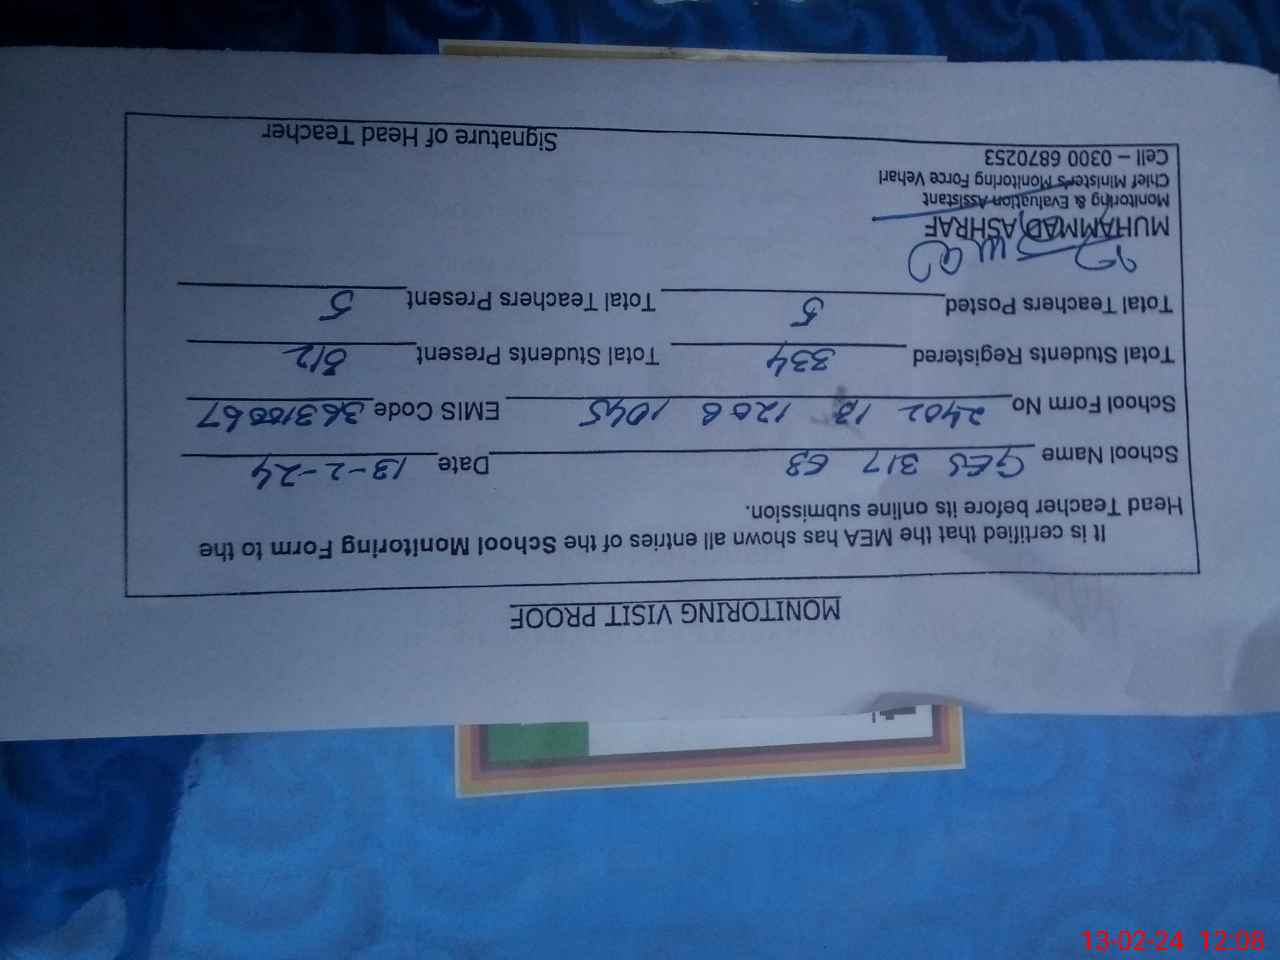 MONITORING VISIT PROOF
It is certified that the MEA has shown all entries of the School Monitoring Form to the
Head Teacher before its online submission.
School Name GES 317 EB Date 13-2-24
School Form No 2402 13 1208 1045 EMIS Code 36310067
Total Students Registered 334 Total Students Present 312
Total Teachers Posted 5 Total Teachers Present 5
MUHAMMAD ASHRAF
Monitoring & Evaluation Assistant
Chief Minister's Monitoring Force Vehari
Cell – 0300 6870253
Signature of Head Teacher
13-02-24 12:08